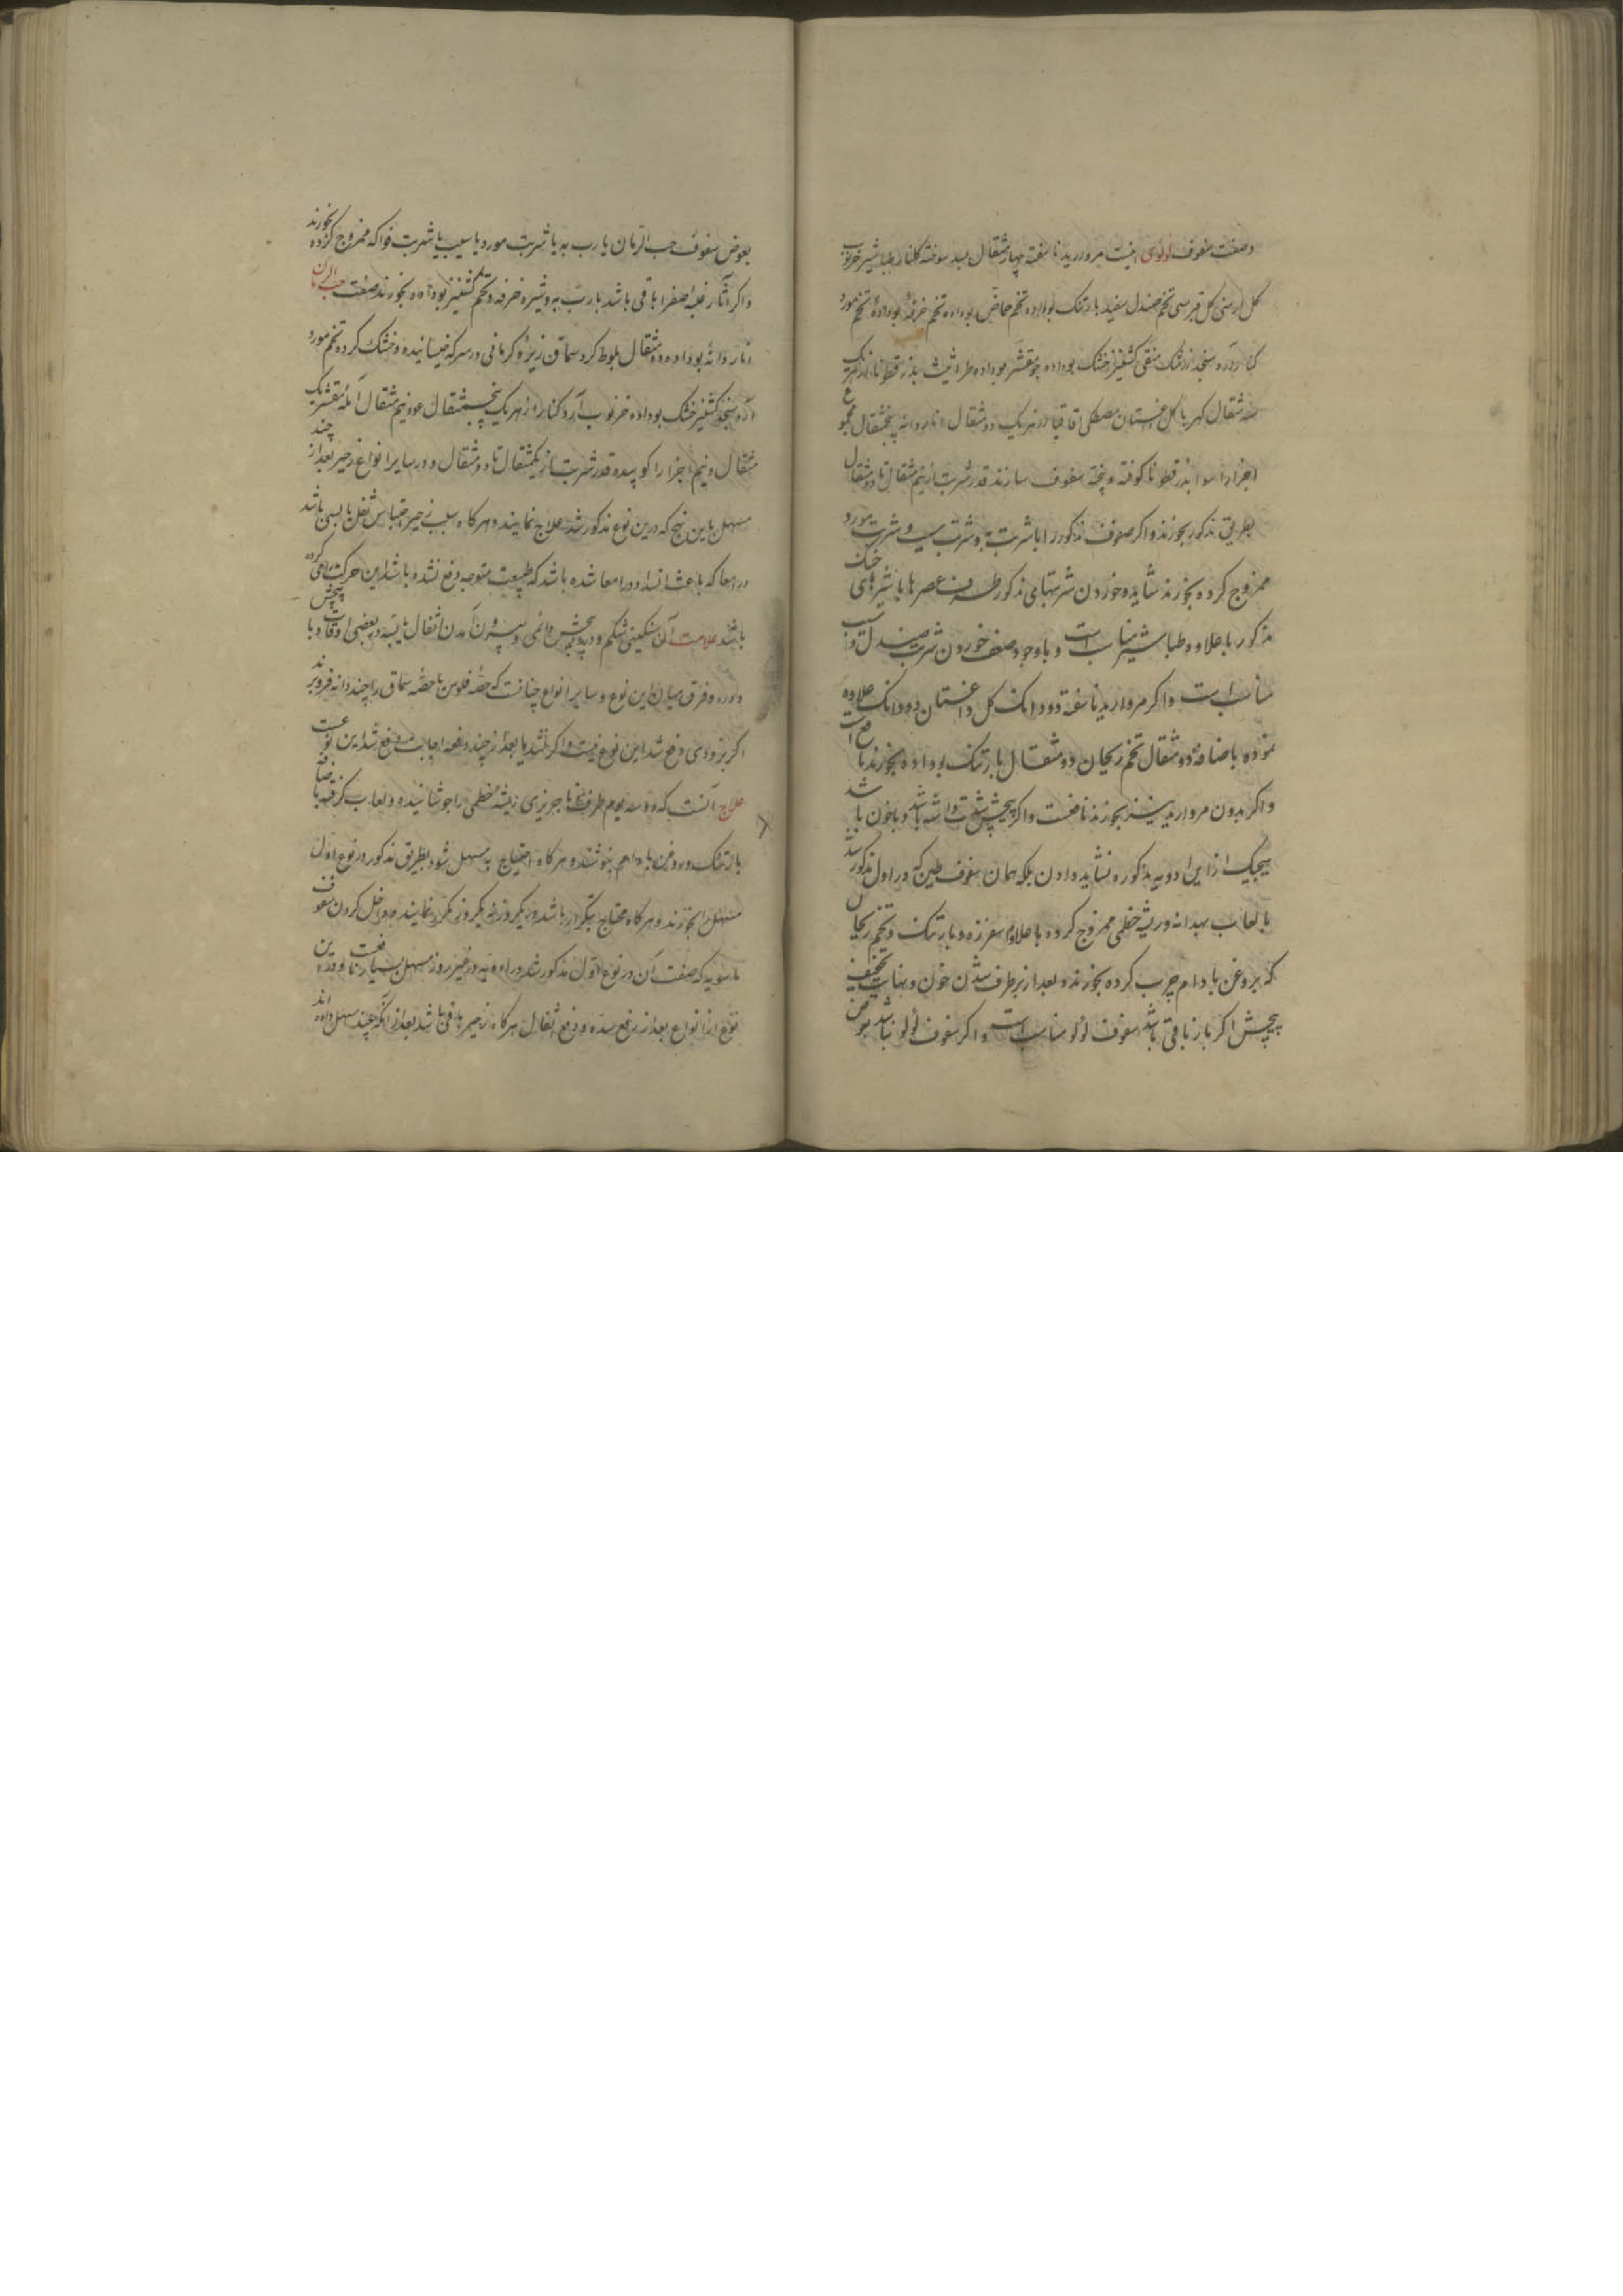 وصفت سفوف لولوی اینست مروارید ناسفته چهار مثقال بسد سوخته گلنار طباشیر خرنوب
گل ارمنی گل قبرسی تخم صندل سفید بارتنک بوداده تخم حماض بوداده تخم خرفه بوداده تخم مورد
کنار آرد سنجد زرشک منقی کشنیز خشک بوداده جو مقشر بوداده طراثیث بذر قطونا از هریک
سه مثقال کهربا گل داغستان مصطکی اقاقیا از هریک دو مثقال انار دانه پنجمثقال مجموع
اجزا را سوا بذر قطونا کوفته و پخته سفوف سازند قدر شربت از نیم مثقال تا دو مثقال
بطریق مذکور بخورند و اکر سفوف مذکور را با شربت به و شربت سیب و شربت مورد
ممزوج کرده بخورند شاید و خوردن شربتهای مذکور با شیرهای خنک
مذکور با علاوه طباشیر مناسب است و با وجود ضعف خوردن شربت صندل و سیب
مناسب است و اکر مروارید ناسفته دو دانک گل داغستان دو دانک علاوه
نموده باضافه دو مثقال تخم ریحان دو مثقال بارتنک بوداده بخورند نافع است
و اکر بدون مروارید نیز بخورند نافعست و اکر پیچش شدت داشته باشد و با خون باشد
هیچیک از این ادویه مذکوره نشاید دادن بلکه همان سفوف طین که در اول مذکور شد
با لعاب بهدانه و ریشه خطمی ممزوج کرده با علاوه اسفرزه و بارتنک و تخم ریحان
که بروغن بادام چرب کرده بخورند و بعد از برطرف شدن خون و نهایت تخفیف
پیچش اکر باز باقی باشد سفوف لولو مناسب است و اکر سفوف لولو نباشد بعوض
بعوض سفوف حب الرمان با رب به یا شربت مورد یا سیب یا شربت فواکه ممزوج کرده بخورند
و اکر آثار غلبه صفرا باقی باشد با رب به و شیره خرفه و تخم کشنیز بوداده بخورند صفت حب الرمان
انار دانه بوداده ده مثقال بلوط کرد سماق زیره کرمانی در سرکه خیسانیده و خشک کرده تخم مورد
آرد سنجد کشنیز خشک بوداده خرنوب آرد کنار از هریک پنجمثقال عود نیم مثقال آمله مقشر یک
مثقال و نیم اجزا را کوبیده قدر شربت از یکمثقال تا دو مثقال و در سایر انواع زحیر بعد از چند
مسهل باین نهج که درین نوع مذکور شد علاج نمایند و هرکاه سبب زحیر احتباس ثفل یابسی باشد
در امعا که باعث انسداد امعا شده باشد که طبیعت متوجه دفع شده باشد این حرکت کرده
باشد علامت آن سنکینی شکم و درد و پیچش دائمی و بیرون آمدن اثفال یابسه در بعضی اوقات با پیچش
و درد و فرق میان این نوع و سایر انواع چنانست که حقنه فلوس یا حصه سماق را چند دانه فرو برند
اکر بزودی دفع شد این نوع نیست و اکر نشد یا بعد از چند دفعه اجابت دفع شد این نوعست
علاج آنست که دو سه یوم ریشه خطمی را جوشانیده و لعاب کرفته باضافه
بارتنک و روغن بادام بنوشند و هرکاه احتیاج به مسهل شود بطریق مذکور در نوع اول
مسهل بخورند و هرکاه محتاج بتکرار باشد یکروز نه یکروز مکرر نمایند و داخل کردن سفوف
که صفت آن در نوع اول مذکور شد در ادویه در غیر روز مسهل بسیار نافعست
نوع از انواع بعد از رفع سده و دفع اثفال هرکاه زحیر باقی باشد بعد از آنکه چند مسهل داده اند